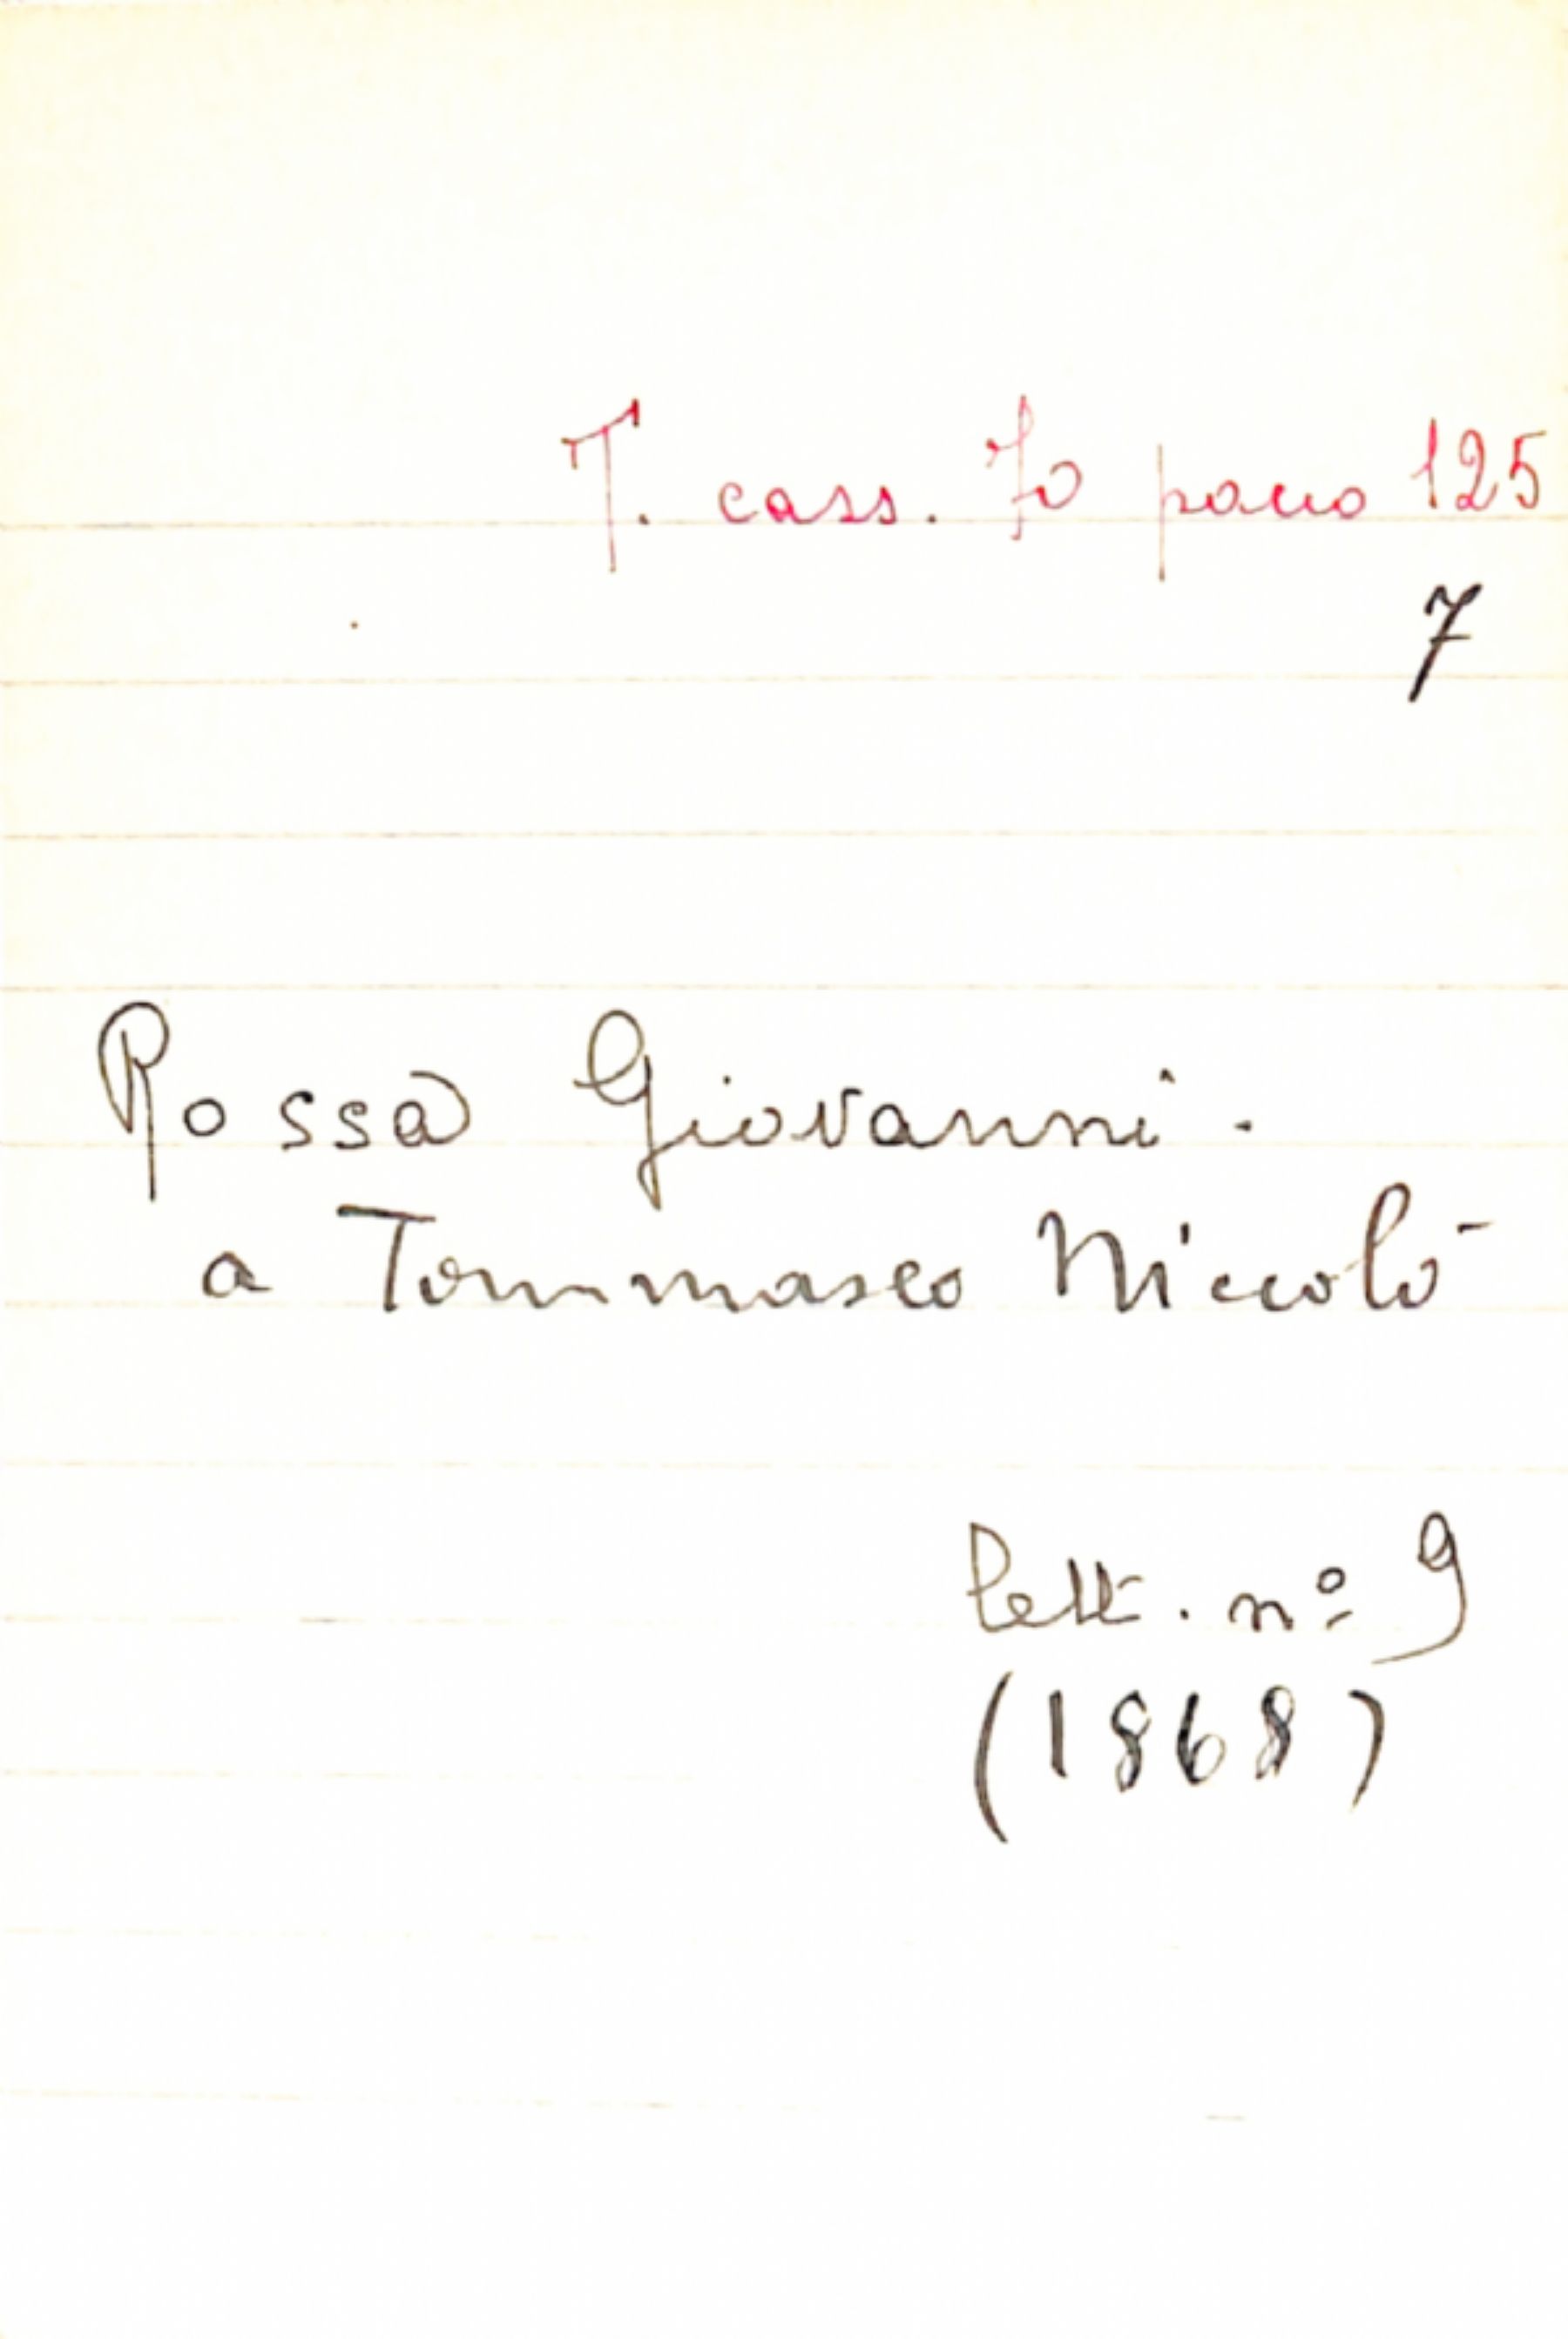 T. cass. 70 pacco 125
7
Rossa Giovanni.
a Tommaseo Niccolò
lett. nº 9
(1868)